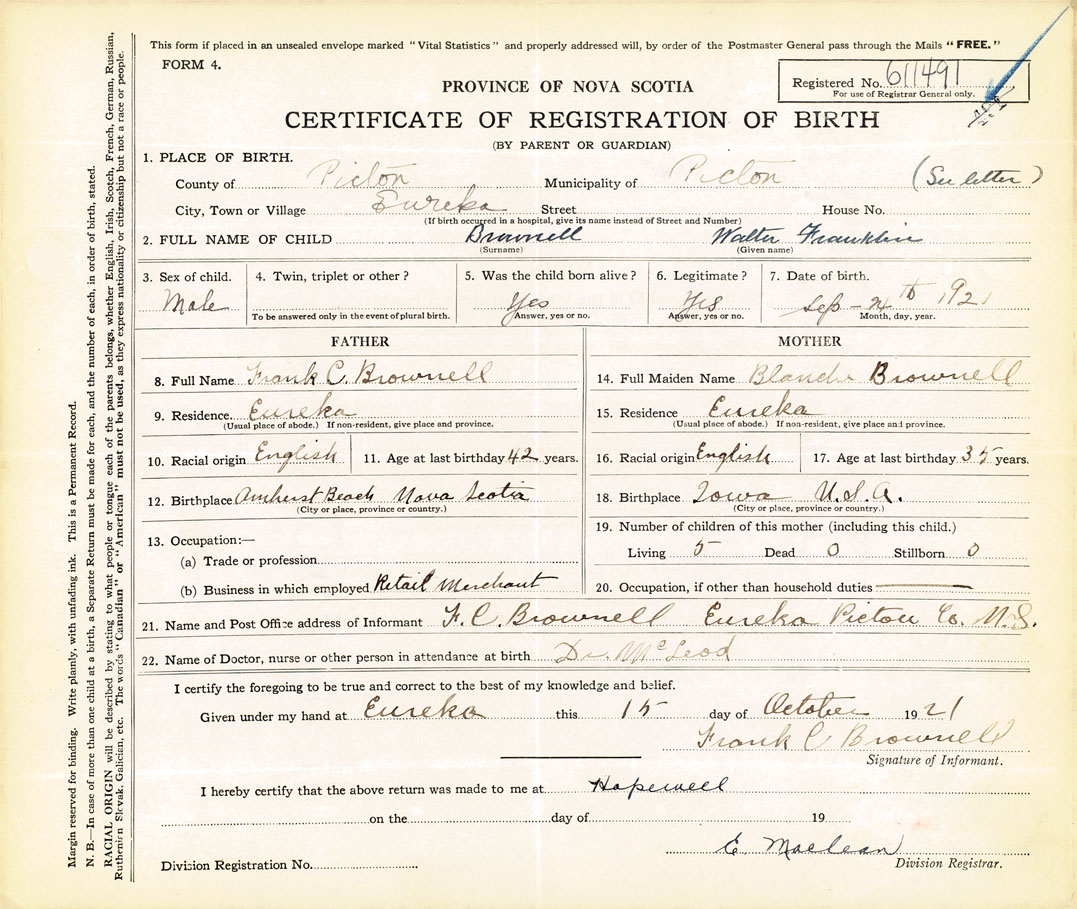 This form if placed in an unsealed envelope marked "Vital Statistics" and properly addressed will, by order of the Postmaster General pass through the Mails "FREE."
FORM 4.
Registered No. 611491
For use of Registrar General only.
PROVINCE OF NOVA SCOTIA
CERTIFICATE OF REGISTRATION OF BIRTH
(BY PARENT OR GUARDIAN)
1. PLACE OF BIRTH.
County of Picton Municipality of Picton (See letter)
City, Town or Village Eureka Street House No.
(If birth occurred in a hospital, give its name instead of Street and Number)
2. FULL NAME OF CHILD Brownell Walter Franklin
(Surname) (Given name)
3. Sex of child. 4. Twin, triplet or other? 5. Was the child born alive? 6. Legitimate? 7. Date of birth.
Male Yes Yes Sep - th 1921
To be answered only in the event of plural birth. Answer, yes or no. Answer, yes or no. Month, day, year.
FATHER
8. Full Name Frank C. Brownell
9. Residence. Eureka
(Usual place of abode.) If non-resident, give place and province.
10. Racial origin English 11. Age at last birthday 42 years.
12. Birthplace Amherst Beach Nova Scotia
(City or place, province or country.)
13. Occupation:—
(a) Trade or profession
(b) Business in which employed Retail Merchant
MOTHER
14. Full Maiden Name Blanche Brownell
15. Residence Eureka
(Usual place of abode.) If non-resident, give place and province.
16. Racial origin English 17. Age at last birthday 35 years.
18. Birthplace Iowa U.S.A.
(City or place, province or country.)
19. Number of children of this mother (including this child.)
Living 5 Dead 0 Stillborn 0
20. Occupation, if other than household duties
21. Name and Post Office address of Informant F. C. Brownell Eureka Pictou Co. N.S.
22. Name of Doctor, nurse or other person in attendance at birth Dr. McLeod
I certify the foregoing to be true and correct to the best of my knowledge and belief.
Given under my hand at Eureka this 15 day of October 1921
Frank C Brownell
Signature of Informant.
I hereby certify that the above return was made to me at Hopewell
on the day of 19
E. Maclean
Division Registrar.
Division Registration No.
Margin reserved for binding. Write plainly, with unfading ink. This is a Permanent Record.
N. B.—In case of more than one child at a birth, a Separate Return must be made for each, and the number of each, in order of birth, stated.
RACIAL ORIGIN will be described by stating to what people or tongue each of the parents belongs, whether English, Irish, Scotch, French, German, Russian,
Ruthenian Slovak, Galician, etc. The words "Canadian" or "American" must not be used, as they express nationality or citizenship but not a race or people.